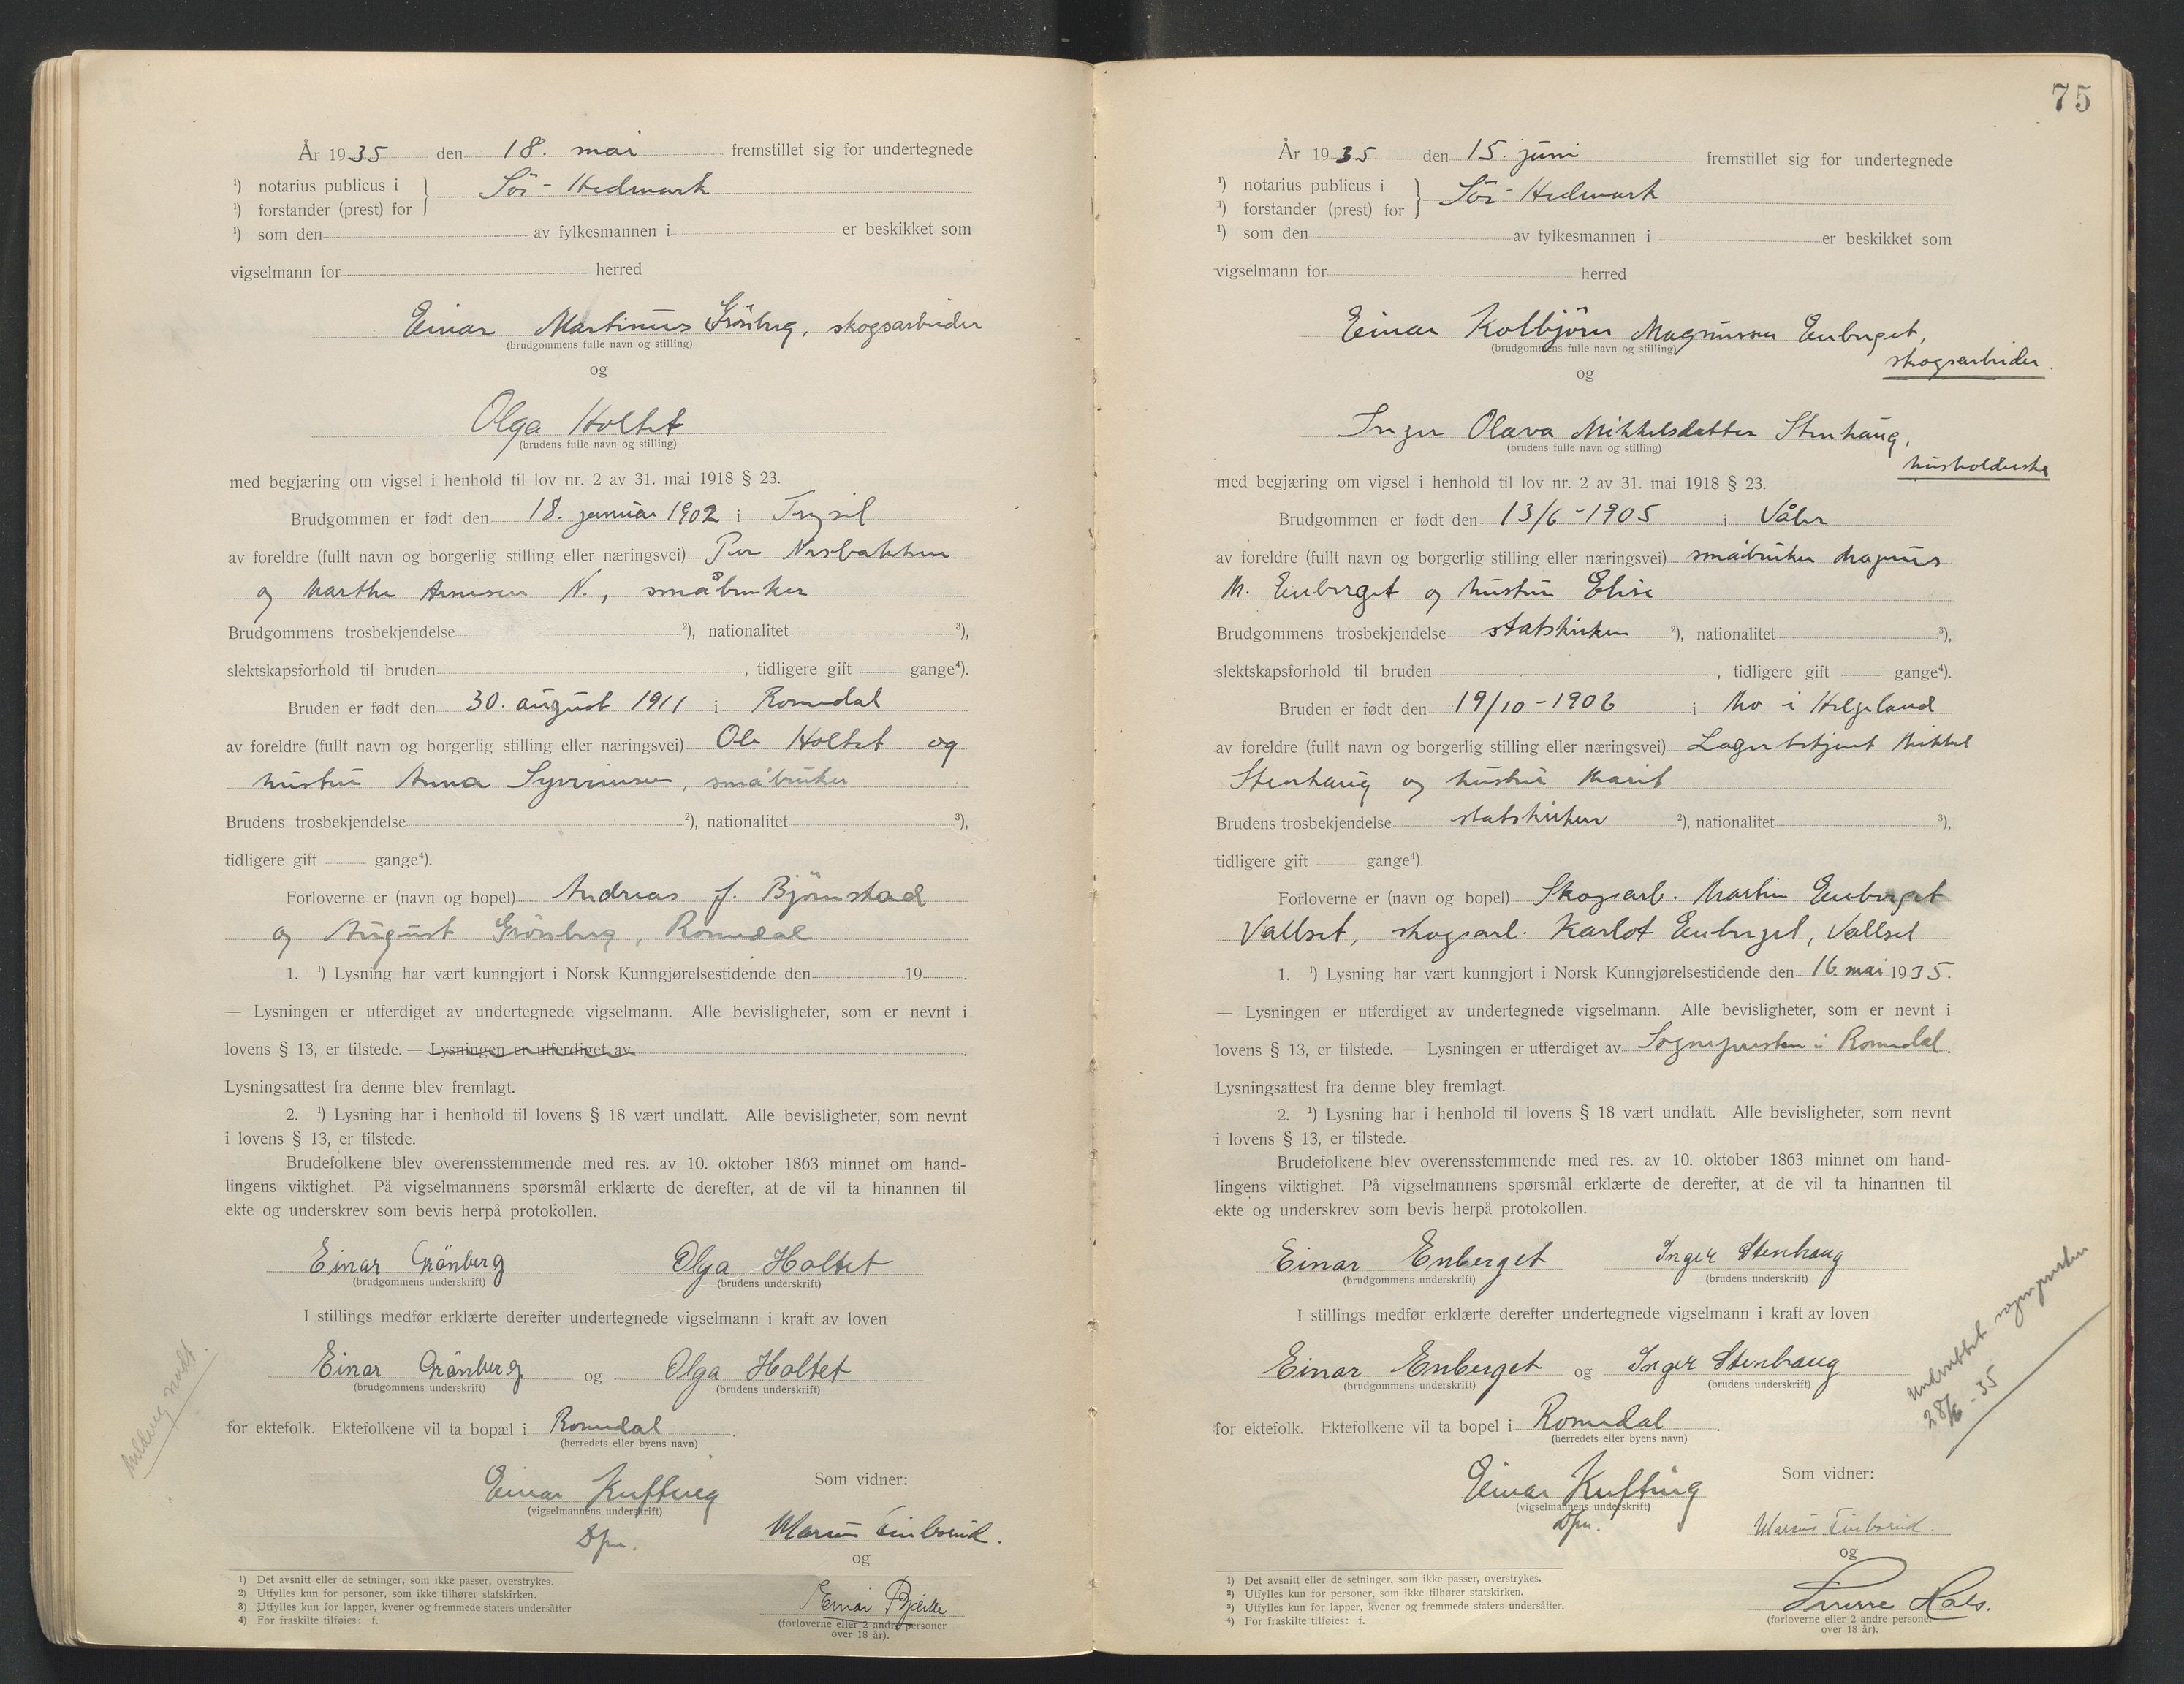 År 1935 den 18. mai fremstillet sig for undertegnede
¹) notarius publicus i
Sör-Hedmark
¹) forstander (prest) for
¹) som den av fylkesmannen i er beskikket som
vigselmann for herred
Einar Martinus Grönberg, skogsarbeider
(brudgommens fulle navn og stilling)
og
Olga Holtet
(brudens fulle navn og stilling)
med begjæring om vigsel i henhold til lov nr. 2 av 31. mai 1918 § 23.
Brudgommen er født den 18. januar 1902 i Trysil
av foreldre (fullt navn og borgerlig stilling eller næringsvei) Per Nesbakken
og Marthe Arnesen N., småbruker
Brudgommens trosbekjendelse ²), nationalitet ³),
slektskapsforhold til bruden , tidligere gift gange⁴).
Bruden er født den 30. august 1911 i Romedal
av foreldre (fullt navn og borgerlig stilling eller næringsvei) Ole Holtet og
hustru Anna Syverinsen, småbruker
Brudens trosbekjendelse ²), nationalitet ³),
tidligere gift gange⁴).
Forloverne er (navn og bopel) Andreas J. Björnstad
og August Grönberg, Romedal
1. ¹) Lysning har vært kunngjort i Norsk Kunngjørelsestidende den 19 .
— Lysningen er utferdiget av undertegnede vigselmann. Alle bevisligheter, som er nevnt i
lovens § 13, er tilstede. — Lysningen er utferdiget av .
Lysningsattest fra denne blev fremlagt.
2. ¹) Lysning har i henhold til lovens § 18 vært undlatt. Alle bevisligheter, som nevnt
i lovens § 13, er tilstede.
Brudefolkene blev overensstemmende med res. av 10. oktober 1863 minnet om hand-
lingens viktighet. På vigselmannens spørsmål erklærte de derefter, at de vil ta hinannen til
ekte og underskrev som bevis herpå protokollen.
Einar Grönberg Olga Holtet
(brudgommens underskrift) (brudens underskrift)
I stillings medfør erklærte derefter undertegnede vigselmann i kraft av loven
Einar Grönberg og Olga Holtet
(brudgommens underskrift) (brudens underskrift)
for ektefolk. Ektefolkene vil ta bopæl i Romedal .
(herredets eller byens navn)
melding sendt.
Einar Kufting Som vidner:
(vigselmannens underskrift)
Dfm. Marius Finbsrud.
og
Einar Bjelke
(forloverne eller 2 andre personer
over 18 år).
1) Det avsnitt eller de setninger, som ikke passer, overstrykes.
2) Utfylles kun for personer, som ikke tilhører statskirken.
3) Utfylles kun for lapper, kvener og fremmede staters undersåtter
4) For fraskilte tilføies: f.
75
År 1935 den 15. juni fremstillet sig for undertegnede
¹) notarius publicus i
Sör-Hedmark
¹) forstander (prest) for
¹) som den av fylkesmannen i er beskikket som
vigselmann for herred
Einar Kolbjörn Magnussen Enberget,
skogsarbeider.
(brudgommens fulle navn og stilling)
og
Inger Olava Mikkelsdatter Stenhaug,
husholderske
(brudens fulle navn og stilling)
med begjæring om vigsel i henhold til lov nr. 2 av 31. mai 1918 § 23.
Brudgommen er født den 13/6-1905 i Våler
av foreldre (fullt navn og borgerlig stilling eller næringsvei) småbruker Magnus
M. Enberget og hustru Elise
Brudgommens trosbekjendelse statskirken ²), nationalitet ³),
slektskapsforhold til bruden , tidligere gift gange⁴).
Bruden er født den 19/10-1906 i Mo i Helgeland
av foreldre (fullt navn og borgerlig stilling eller næringsvei) Lagerbetjent Mikkel
Stenhaug og hustru Marit
Brudens trosbekjendelse statskirken ²), nationalitet ³),
tidligere gift gange⁴).
Forloverne er (navn og bopel) Skogsarb. Martin Enberget
Vallset, skogsarb. Karlot Enberget, Vallset
1. ¹) Lysning har vært kunngjort i Norsk Kunngjørelsestidende den 16. mai 1935.
— Lysningen er utferdiget av undertegnede vigselmann. Alle bevisligheter, som er nevnt i
lovens § 13, er tilstede. — Lysningen er utferdiget av Sognepresten i Romedal.
Lysningsattest fra denne blev fremlagt.
2. ¹) Lysning har i henhold til lovens § 18 vært undlatt. Alle bevisligheter, som nevnt
i lovens § 13, er tilstede.
Brudefolkene blev overensstemmende med res. av 10. oktober 1863 minnet om hand-
lingens viktighet. På vigselmannens spørsmål erklærte de derefter, at de vil ta hinannen til
ekte og underskrev som bevis herpå protokollen.
Einar Enberget Inger Stenhaug
(brudgommens underskrift) (brudens underskrift)
I stillings medfør erklærte derefter undertegnede vigselmann i kraft av loven
Einar Enberget og Inger Stenhaug
(brudgommens underskrift) (brudens underskrift)
for ektefolk. Ektefolkene vil ta bopel i Romedal .
(herredets eller byens navn)
Underrettet sognepresten
28/6-35
Einar Kufting Som vidner:
(vigselmannens underskrift)
Dfm. Marius Finbsrud.
og
Sverre Hals.
(forloverne eller 2 andre personer
over 18 år).
1) Det avsnitt eller de setninger, som ikke passer, overstrykes.
²) Utfylles kun for personer, som ikke tilhører statskirken.
³) Utfylles kun for lapper, kvener og fremmede staters undersåtter.
⁴) For fraskilte tilføies: f.